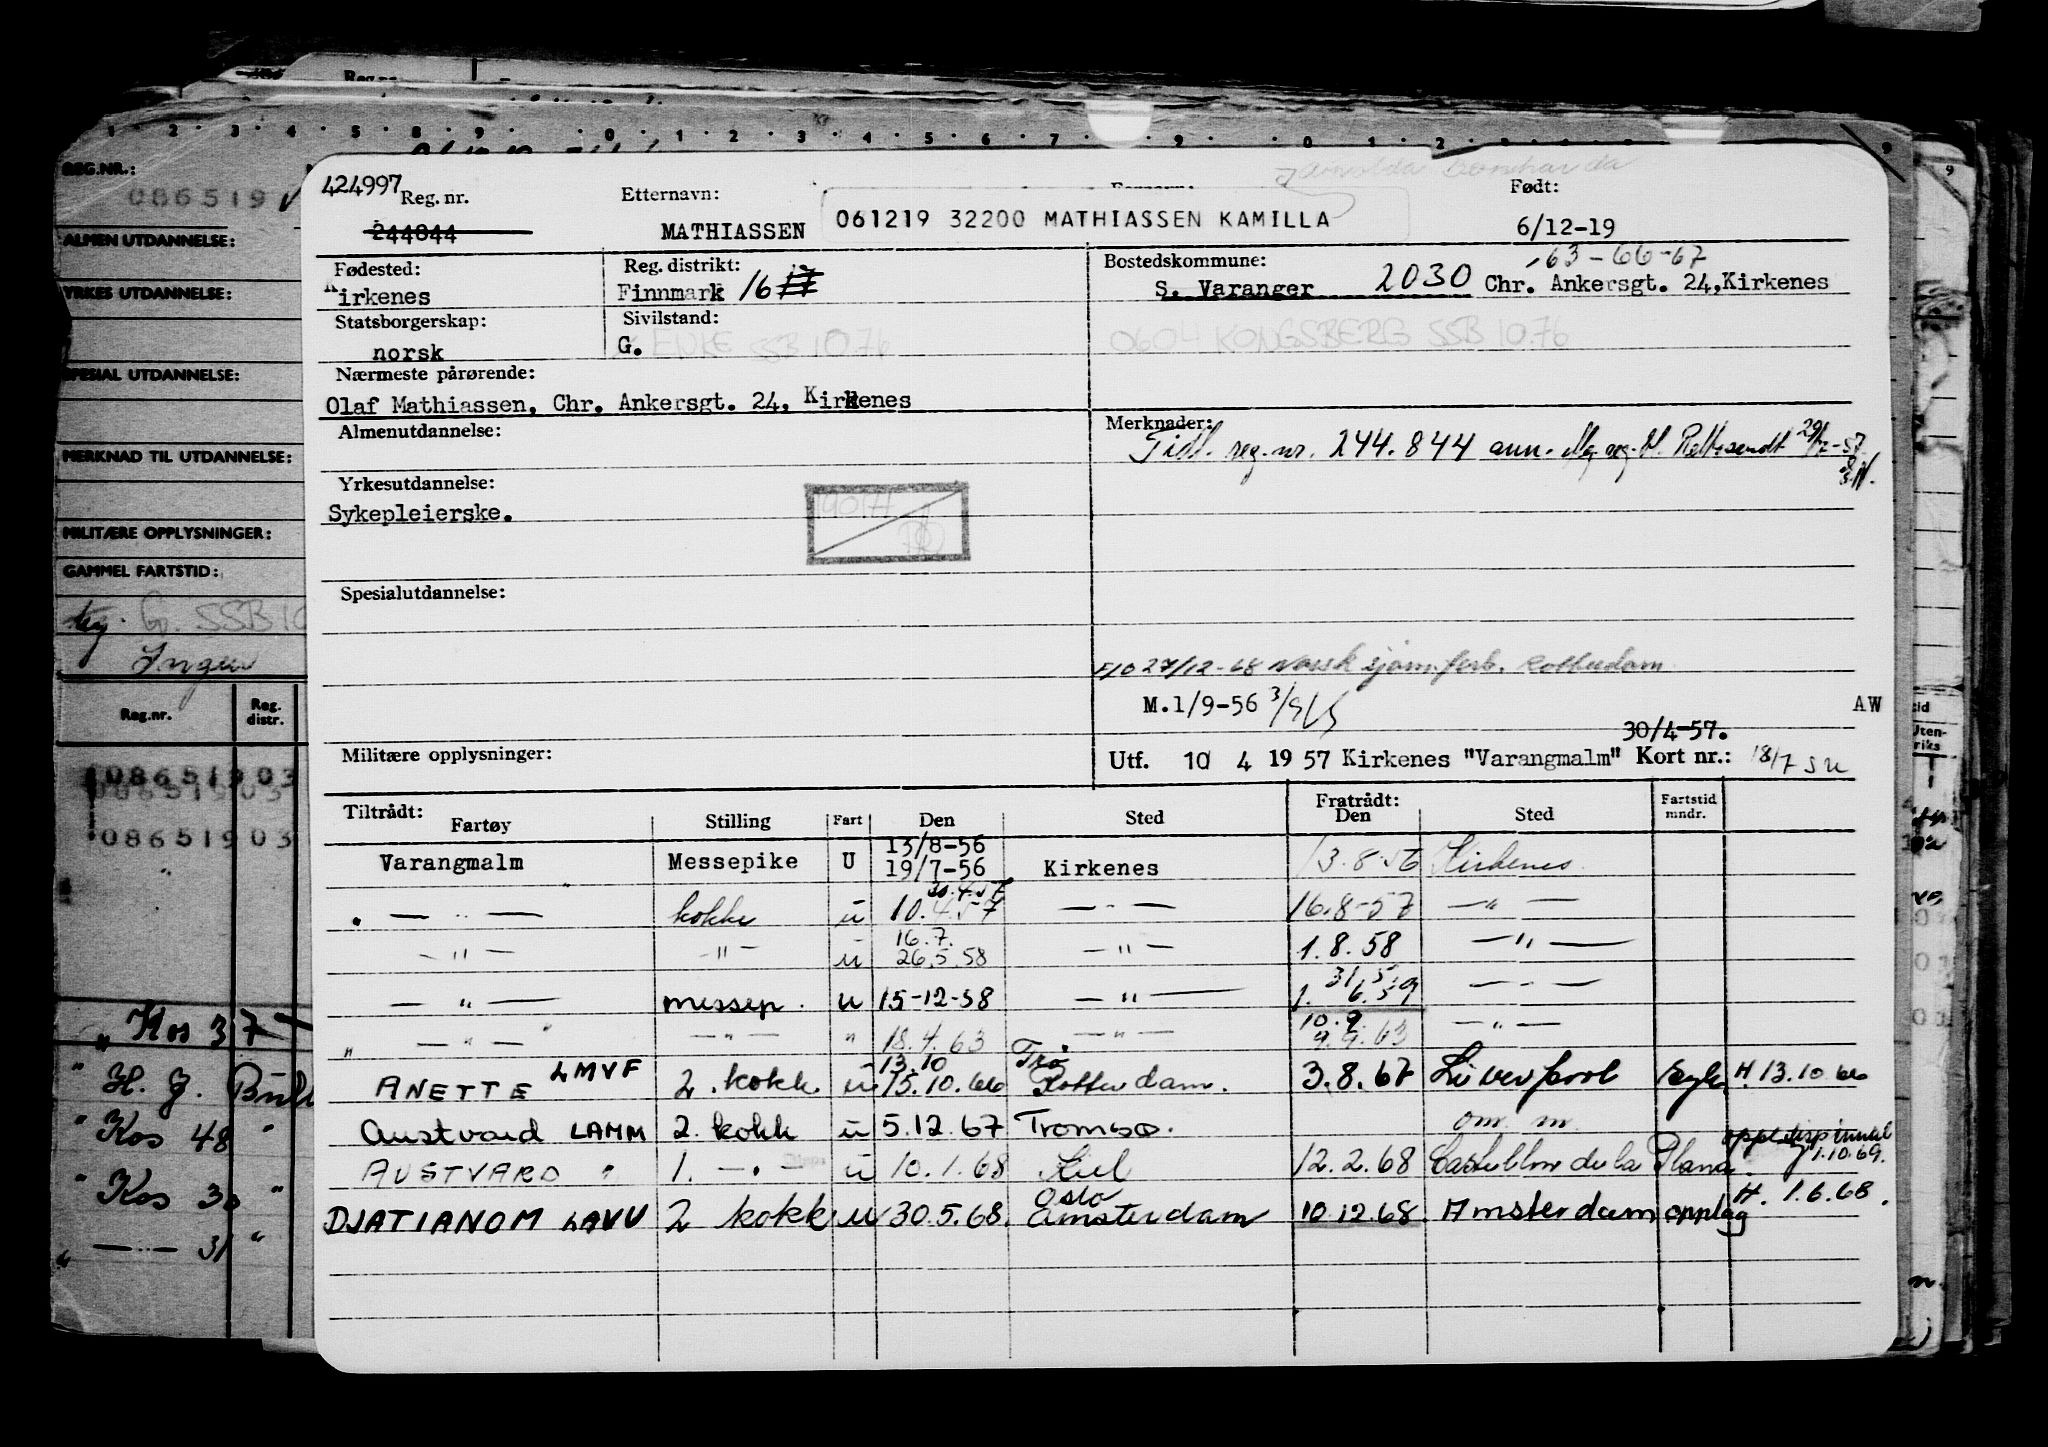 REG.NR.:
086519
ALMEN UTDANNELSE:
YRKES UTDANNELSE:
SPESIAL UTDANNELSE:
MERKNAD TIL UTDANNELSE:
MILITÆRE OPPLYSNINGER:
GAMMEL FARTSTID:
G. SSB 10
Ingen
Reg.nr. Reg. distr.
086519 03
086519 03
" Kos 37
" H. J.
" Kos 48 "
" Kos 30 "
" — " — 31 "
424997 Reg. nr. Etternavn: Født:
244844 MATHIASSEN 061219 32200 MATHIASSEN KAMILLA 6/12-19
Fødested: Reg. distrikt: Bostedskommune: 63-66-67
Kirkenes Finnmark 16 S. Varanger 2030 Chr. Ankersgt. 24, Kirkenes
Statsborgerskap: Sivilstand:
norsk G. ENKE SSB 10.76 0604 KONGSBERG SSB 10.76
Nærmeste pårørende:
Olaf Mathiassen, Chr. Ankersgt. 24, Kirkenes
Almenutdannelse: Merknader:
Tidl. reg.nr. 244.844 ann.
Yrkesutdannelse:
Sykepleierske.
Spesialutdannelse:
F/O 27/12-68 Norsk sjøm.forb. Rotterdam
M.1/9-56 AW
30/4-57.
Militære opplysninger: Utf. 10 4 1957 Kirkenes "Varangmalm" Kort nr.: 18/7 SU
Tiltrådt: Fartøy Stilling Fart Den Sted Fratrådt: Den Sted Fartstid mndr.
Varangmalm Messepike U 13/8-56 19/7-56 Kirkenes 13.8.56 Kirkenes
— " — kokke u 30.4.57 10.4.57 — " — 16.8-57 — " —
— " — — " — u 16.7. 26.5.58 — " — 1.8.58 — " —
— " — messep. u 15-12-58 — " — 31.5.59 1.6.59 — " —
" — " — — " — " 18.4.63 — " — 10.9. 9.9.63 — " —
ANETTE LMVF 2. kokk u 13.10 15.10.66 Trø Rotterdam. 3.8.67 Liverpool Syk H 13.10 66
Austvard LAMM 2. kokk u 5.12.67 Tromsø. om. m.
AUSTVARD " 1. — " — u 10.1.68 Kiel 12.2.68 Castellon de la Plana 1.10.69.
DJATIANOM LAVU 2 kokk u 30.5.68. Oslo Amsterdam 10.12.68. Amsterdam opplag H. 1.6.68.